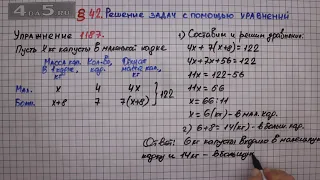 4 на 5
§ 42. Решение задач с помощью уравнений
Упражнение 1187.
Пусть x кг капусты в маленькой корзине
Масса кап. в 1 корз., кг
Кол-во, кор.
Общая масса кап., кг
Мал. x 4 4x
Больш. x+8 7 7(x+8)
} 122
1) Составим и решим уравнение:
4x + 7(x+8) = 122
4x + 7x + 56 = 122
11x = 122 - 56
11x = 66
x = 66 : 11
x = 6 (кг) - в мал. кор.
2) 6+8 = 14 (кг) - в больш. кор.
Ответ: 6 кг капусты в маленькую
корзину и 14 кг - в большую